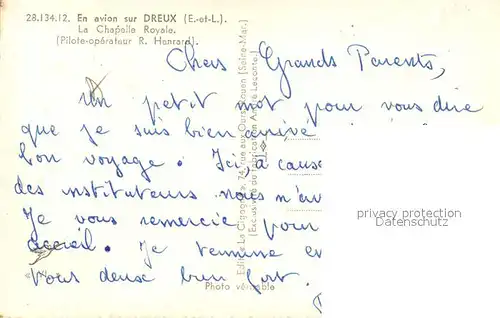 28.134.12. En avion sur DREUX (E.-et-L.).
La Chapelle Royale.
(Pilote-opérateur R. Henrard).
Chers Grands Parents,
Un petit mot pour vous dire
que je suis bien arrivé
bon voyage. Ici, à cause
des instituteurs nous n'av
Je vous remercie pour
accueil. Je termine en
vous deux bien fort.
Photo véritable
privacy protection
Datenschutz